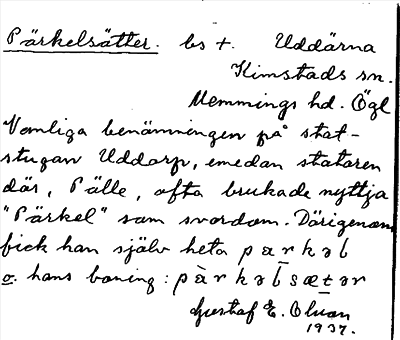 Pärkelsätter. bs +. Uddärna
Kimstads sn.
Memmings hd. Ögl
Vanliga benämningen på stat-
stugan Uddarp, emedan stataren
där, Pälle, ofta brukade nyttja
"Pärkel" som svordom. Därigenom
fick han själv heta pærkəl
o. hans boning: pàrkəlsætər
Gustaf E. Olsson
1937.